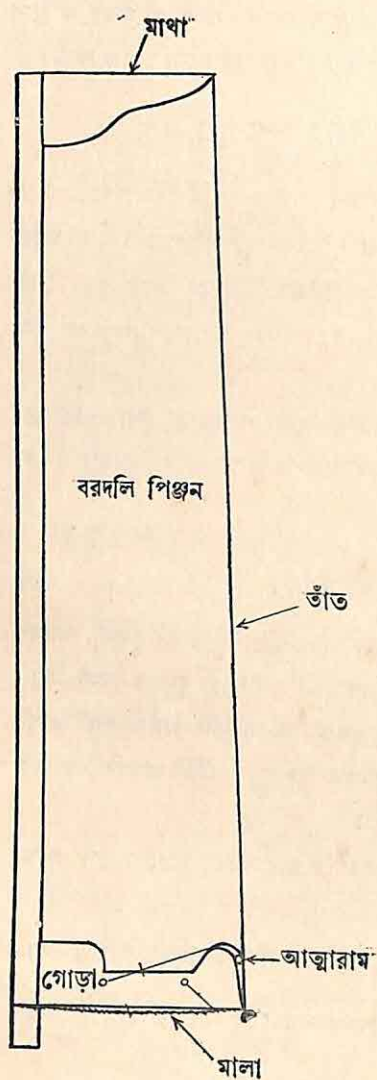 মাথা
বরদলি পিঞ্জন
তাঁত
গোড়া
আত্মারাম
মালা